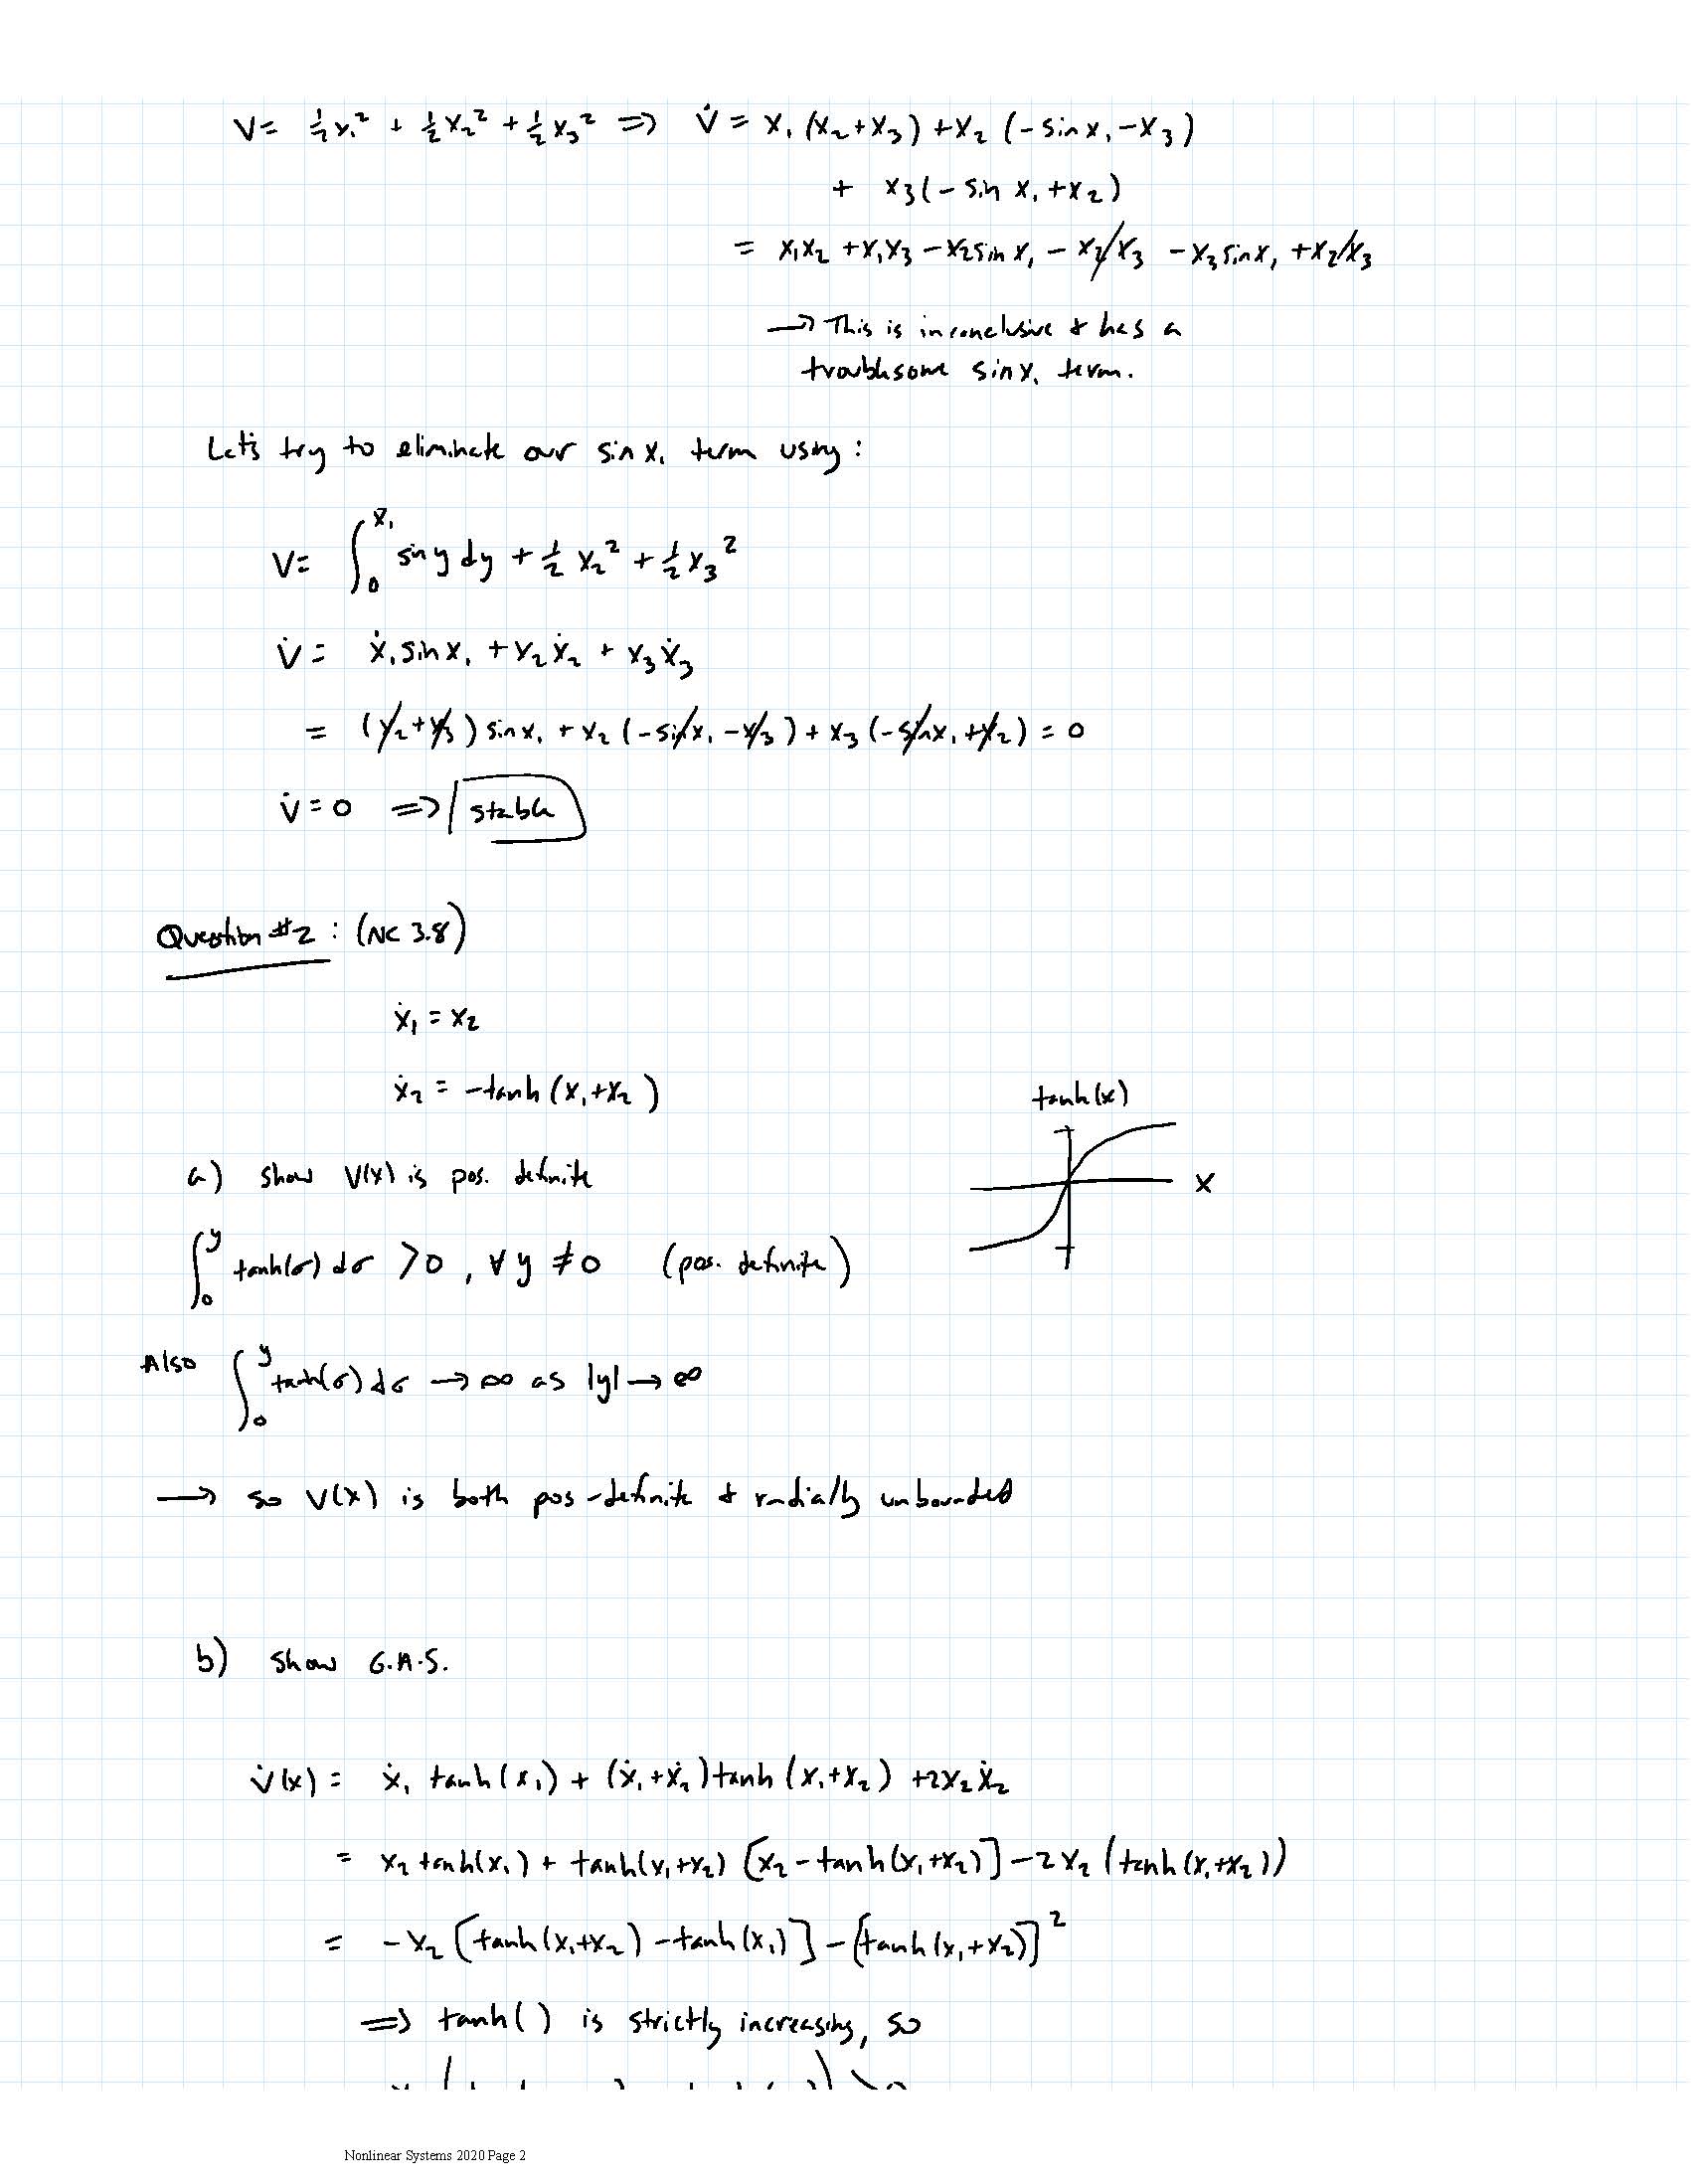 V = ½x₁² + ½x₂² + ½x₃² ⇒ V̇ = x₁(x₂+x₃) + x₂(-sin x₁ - x₃)
+ x₃(-sin x₁ + x₂)
= x₁x₂ + x₁x₃ - x₂sin x₁ - x₂x₃ - x₃sin x₁ + x₂x₃
→ This is inconclusive & has a
troublesome sin x₁ term.
Let's try to eliminate our sin x₁ term using:
V = ∫₀^x₁ sin y dy + ½x₂² + ½x₃²
V̇ = ẋ₁ sin x₁ + x₂ẋ₂ + x₃ẋ₃
= (x₂+x₃) sin x₁ + x₂(-sin x₁ - x₃) + x₃(-sin x₁ + x₂) = 0
V̇ = 0 ⇒ stable
Question #2 : (NC 3.8)
ẋ₁ = x₂
ẋ₂ = -tanh(x₁+x₂)
tanh(x)
x
a) show V(x) is pos. definite
∫₀^y tanh(σ) dσ > 0, ∀ y ≠ 0 (pos. definite)
Also ∫₀^y tanh(σ) dσ → ∞ as |y| → ∞
→ so V(x) is both pos-definite & radially unbounded
b) show G.A.S.
V̇(x) = ẋ₁ tanh(x₁) + (ẋ₁+ẋ₂)tanh(x₁+x₂) + 2x₂ẋ₂
= x₂ tanh(x₁) + tanh(x₁+x₂) [x₂ - tanh(x₁+x₂)] - 2x₂(tanh(x₁+x₂))
= -x₂[tanh(x₁+x₂) - tanh(x₁)] - [tanh(x₁+x₂)]²
⇒ tanh() is strictly increasing, so
Nonlinear Systems 2020 Page 2